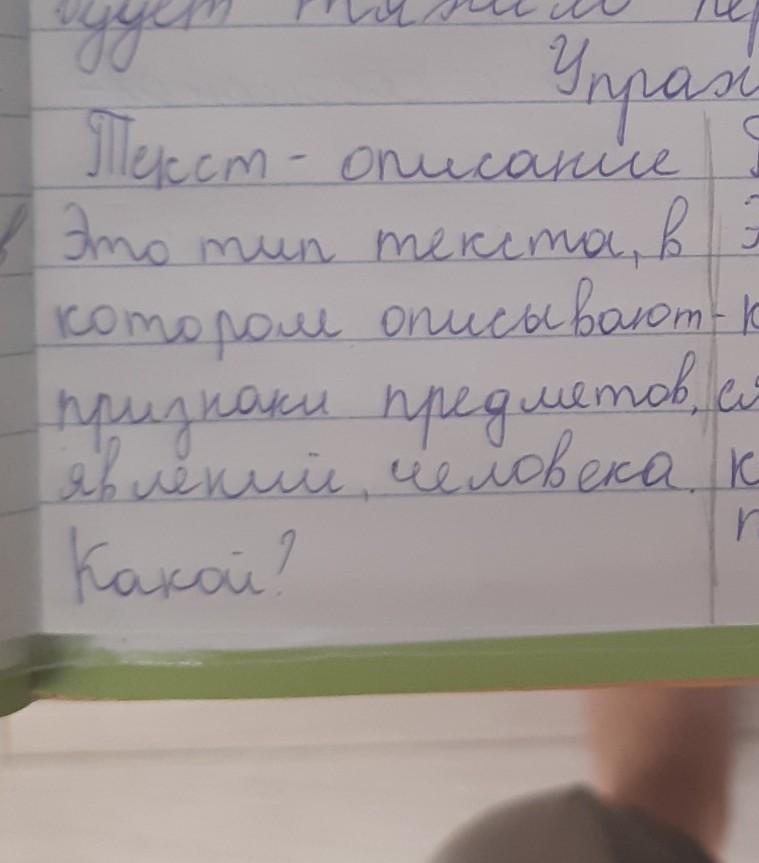 будет
Упраж
Текст - описание
Это тип текста, в
котором описывают
признаки предметов,
явлений, человека.
Какой?